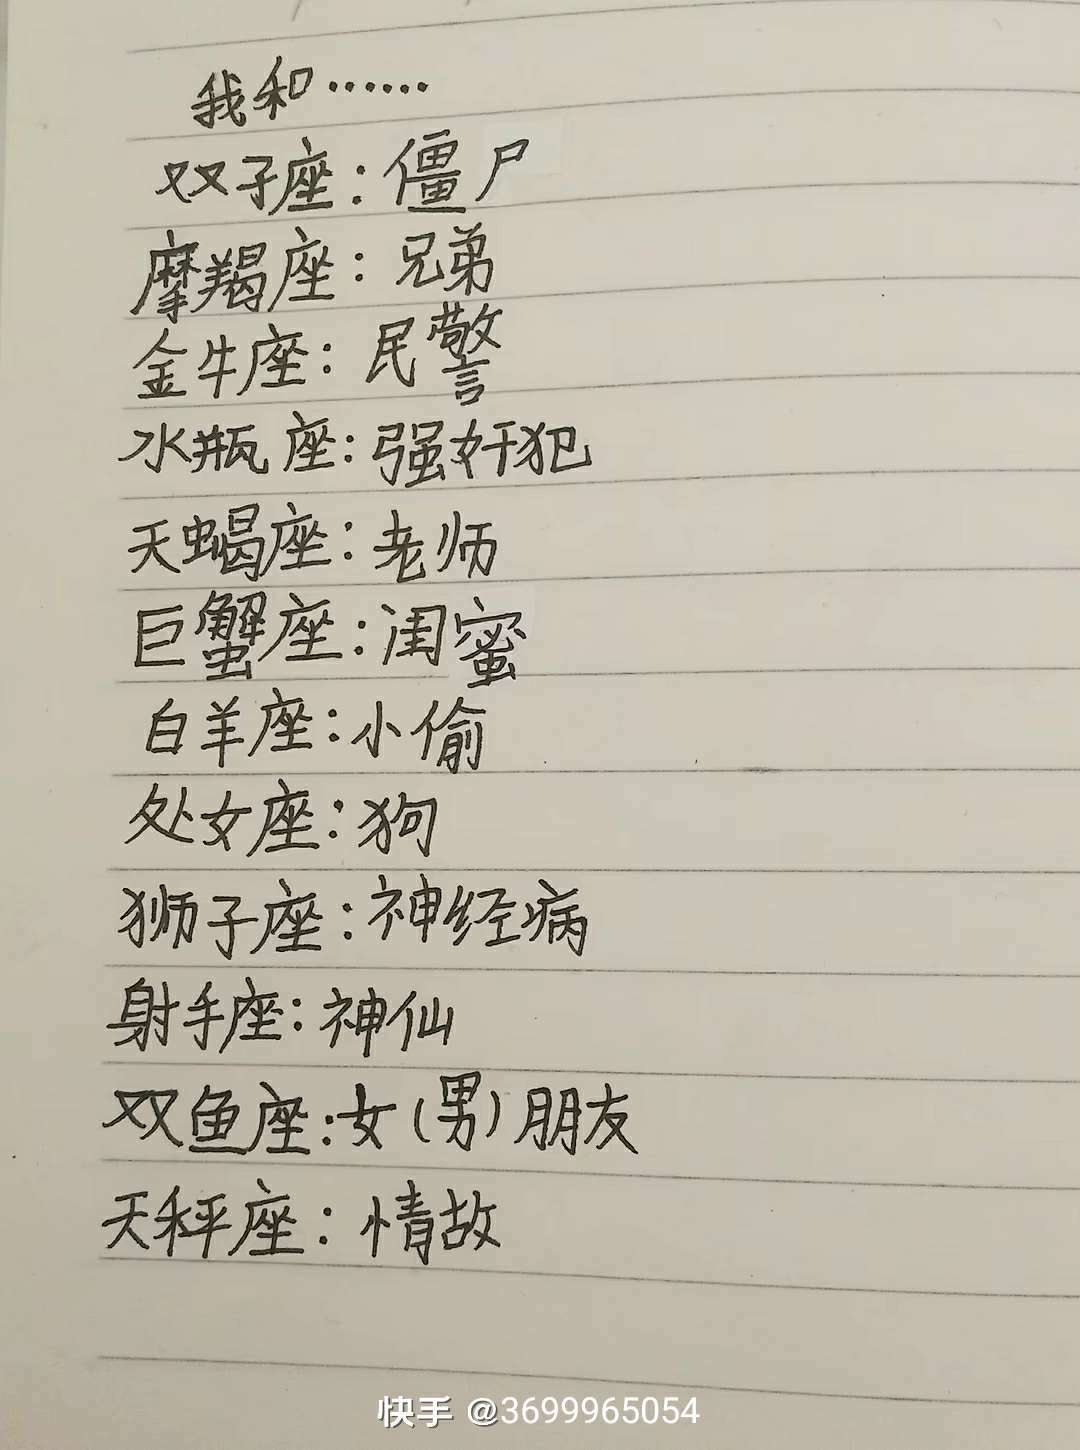 我和······
双子座：僵尸
摩羯座：兄弟
金牛座：民警
水瓶座：强奸犯
天蝎座：老师
巨蟹座：闺蜜
白羊座：小偷
处女座：狗
狮子座：神经病
射手座：神仙
双鱼座：女（男）朋友
天秤座：情故
快手 @3699965054